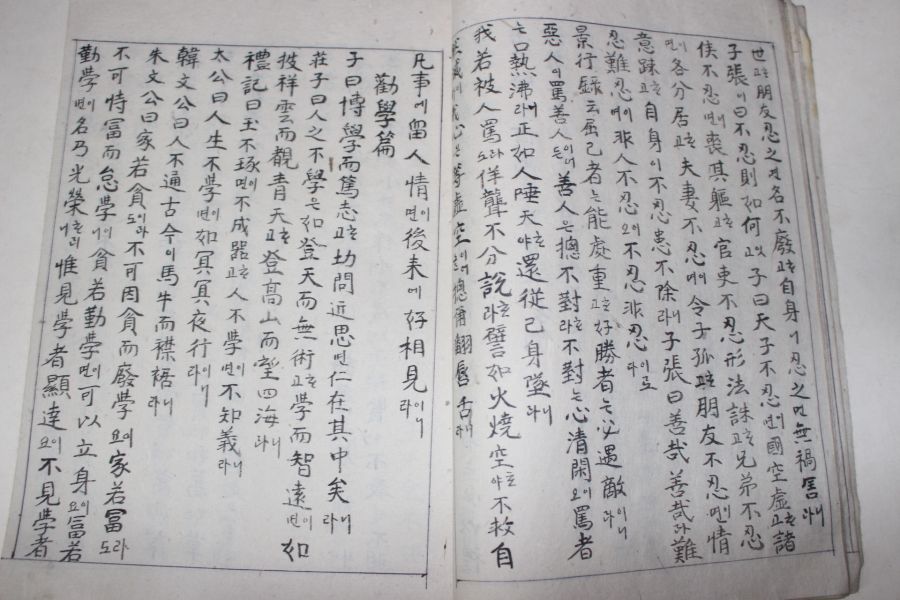 世고朋友忍之면名不廢고自身이忍之면無禍害니라
子張이曰不忍則如何오子曰天子不忍면國空虛고諸
侯不忍면喪其軀고官吏不忍면形法誅고兄弟不忍
면各分居고夫妻不忍면令子孤고朋友不忍면情
意踈고自身이不忍면患不除니라子張曰善哉善哉라難
忍難忍이여非人不忍이오不忍非忍이로다
景行錄云屈己者는能處重고好勝者는必遇敵이니라
惡人이罵善人이어든善人은摠不對라不對는心清閑이오罵者
는口熱沸니라正如人唾天야還從己身墜니라
我若被人罵라도佯聾不分說라譬如火燒空야不救自
我心은等虛空이어늘總爾翻唇舌니라
凡事에留人情이면後來에好相見이니라
勸學篇
子曰博學而篤志고切問近思면仁在其中矣니라
莊子曰人之不學은如登天而無術고學而智遠이면如
披祥雲而覩青天고登高山而望四海니라
禮記曰玉不琢이면不成器고人不學이면不知義니라
太公曰人生不學이면如冥冥夜行이니라
韓文公曰人不通古今이면馬牛而襟裾니라
朱文公曰家若貧이라도不可因貧而廢學이요家若冨라도
不可恃冨而怠學이니貧若勤學이면可以立身이요冨若
勤學이면名乃光榮이니라惟見學者顯達이요不見學者